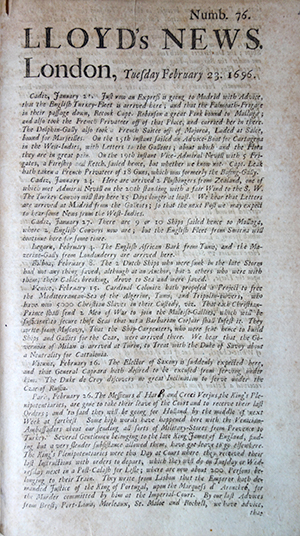 Numb. 76.
LLOYD's NEWS.
London, Tuesday February 23. 1696.
Cadiz, January 21. Just now an Express is going to Madrid with Advice,
that the English Turkey-Fleet is arrived here; and that the Falmouth-Frigate
in their passage down, Retook Capt. Robinson a great Pink bound to Mallaga;
and also took the French Privateer off of this Place, and carried her to them.
The Dolphin-Gally also took a French Saitee off of Majorca, Laded at Salee,
bound for Marseilles. On the 15th instant sailed an Advice-Boat for Cartagena
in the West-Indies, with Letters to the Galleons; about which and the Flota
they are in great pain. On the 19th instant Vice-Admiral Nevill with 5 Fri-
gates, a Fireship and Ketch, sailed hence, but whether is not known. Capt. Leak
hath taken a French Privateer of 18 Guns, which was formerly the Betty-Gally.
Cadiz, January 24. Here are arrived 2 Flushingers from Zealand, one of
which met Admiral Nevill on the 20th standing with a fair Wind to the S. W.
The Turkey Convoy will stay here 15 Days longer at least. We hear that Letters
are arrived at Madrid from the Galleons; so that the next Post we may expect
to hear some News from the West-Indies.
Cadiz, January 27. There are 9 or 10 Ships sailed hence to Mallaga,
where 2 English Convoys now are; but the English Fleet from Smirna will
continue here for some time.
Legorn, February 4. The English African Bark from Tunis, and the Ma-
zarine-Gally from Londonderry are arrived here.
Bilboa, February 8. The 2 Dutch Ships who were sunk in the late Storm
had not any thing saved, although at an Anchor, but 2 others who were with
them, their Cables breaking, drove to Sea and were saved.
Venice, February 15. Cardinal Colonitz hath proposed a Project to free
the Mediterranean-Sea of the Algerine, Tunis, and Tripoly-rovers, who
have now 10000 Christian Slaves in their Custody, viz. That each Christian-
Prince shall find 2 Men of War to join the Maltese-Gallies, which will be
sufficient to secure these Seas that not a Barbarian Corsair shall infest it. They
write from Muscovy, That the Ship-Carpenters, who were sent hence to build
Ships and Gallies for the Czar, were arrived there. We hear that the Go-
vernour of Milan is arrived at Turin, to Treat with the Duke of Savoy about
a Neutrality for Cattalonia.
Vienna, February 16. The Elector of Saxony is suddenly expected here,
and that General Caprara hath desired to be excused from serving under
him. The Duke de Croy discovers no great Inclination to serve under the
Czar of Russia.
Paris, February 26. The Messieurs d' Harlay and Crecy Verjus, the King's Ple-
nipotentiaries, are gone to take their leave of the Court and to receive their last
Orders; and 'tis said they will be going for Holland by the middle of next
Week at farthest. Long words have happened here with the Venetian-
Ambassadors about our sending all sorts of Military-Stores from Provence to
Turkey. Several Gentlemen belonging to the late King James of England, find-
ing but a very slender subsistence allowed them, have got leave to go elsewhere.
The King's Plenipotentiaries were this Day at Court where they received their
last Instructions with orders to depart, which they will do on Tuesday or Wed-
nesday next in a Post-Calash for Lisle; where are now about 200 Persons be-
longing to their Train. They write from Lisbon that the Emperor hath de-
manded Justice of the King of Portugal, upon the Marquess d' Arronches, for
the Murder committed by him at the Imperial-Court. By our last Advices
from Brest, Port-Louis, Morleaux, St. Malo and Rochell, we have advice,
that